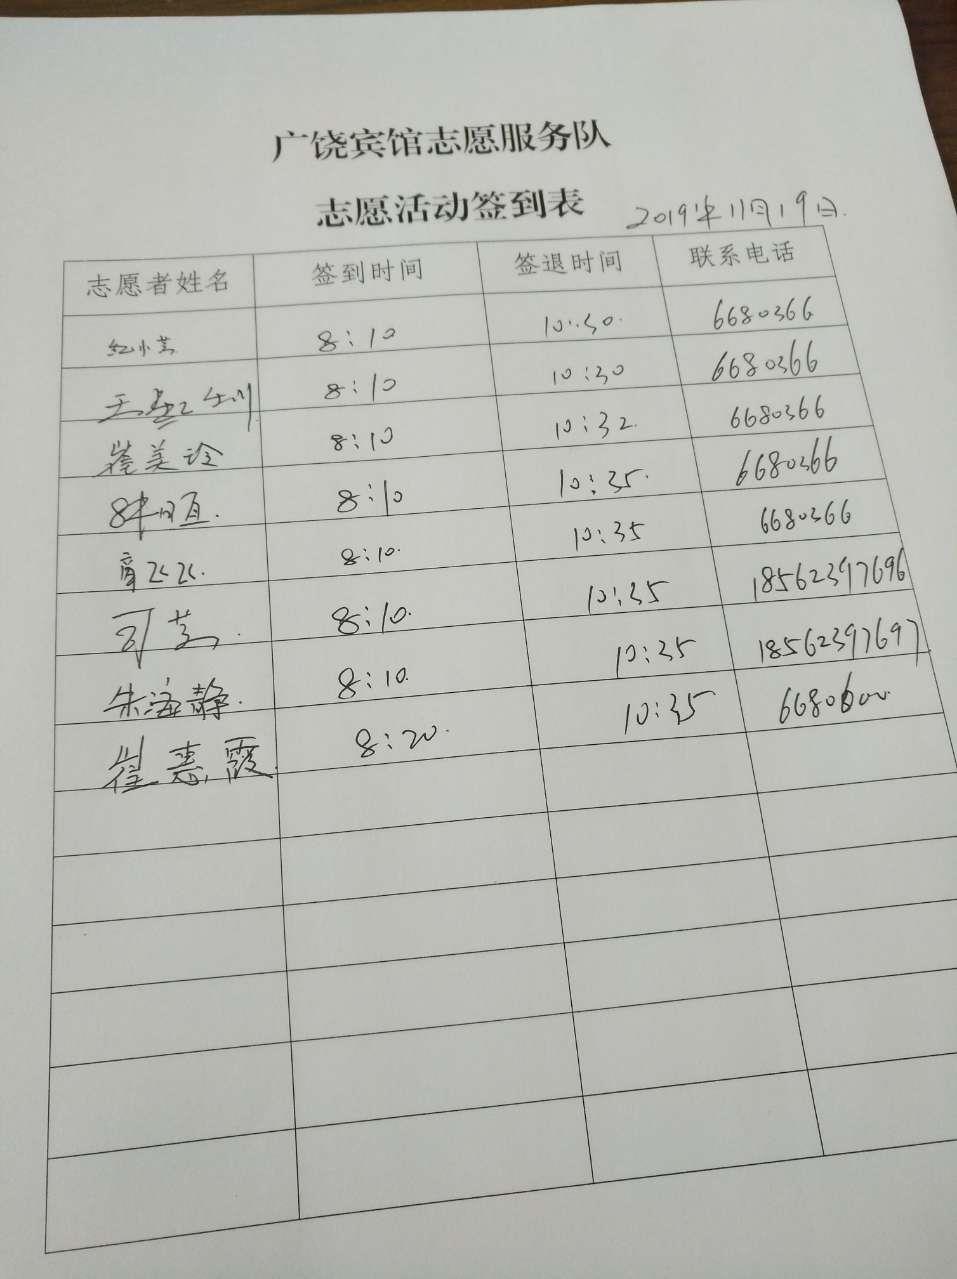 广饶宾馆志愿服务队
志愿活动签到表 2019年11月19日.
志愿者姓名 签到时间 签退时间 联系电话
8:10 10:30. 6680366
8:10 10:30 6680366
崔美玲 8:10 10:32. 6680366
8:10 10:35. 6680366
8:10. 10:35 6680366
8:10. 10:35 18562397696
朱海静. 8:10. 10:35 18562397697
崔惠霞. 8:20. 10:35 6680600